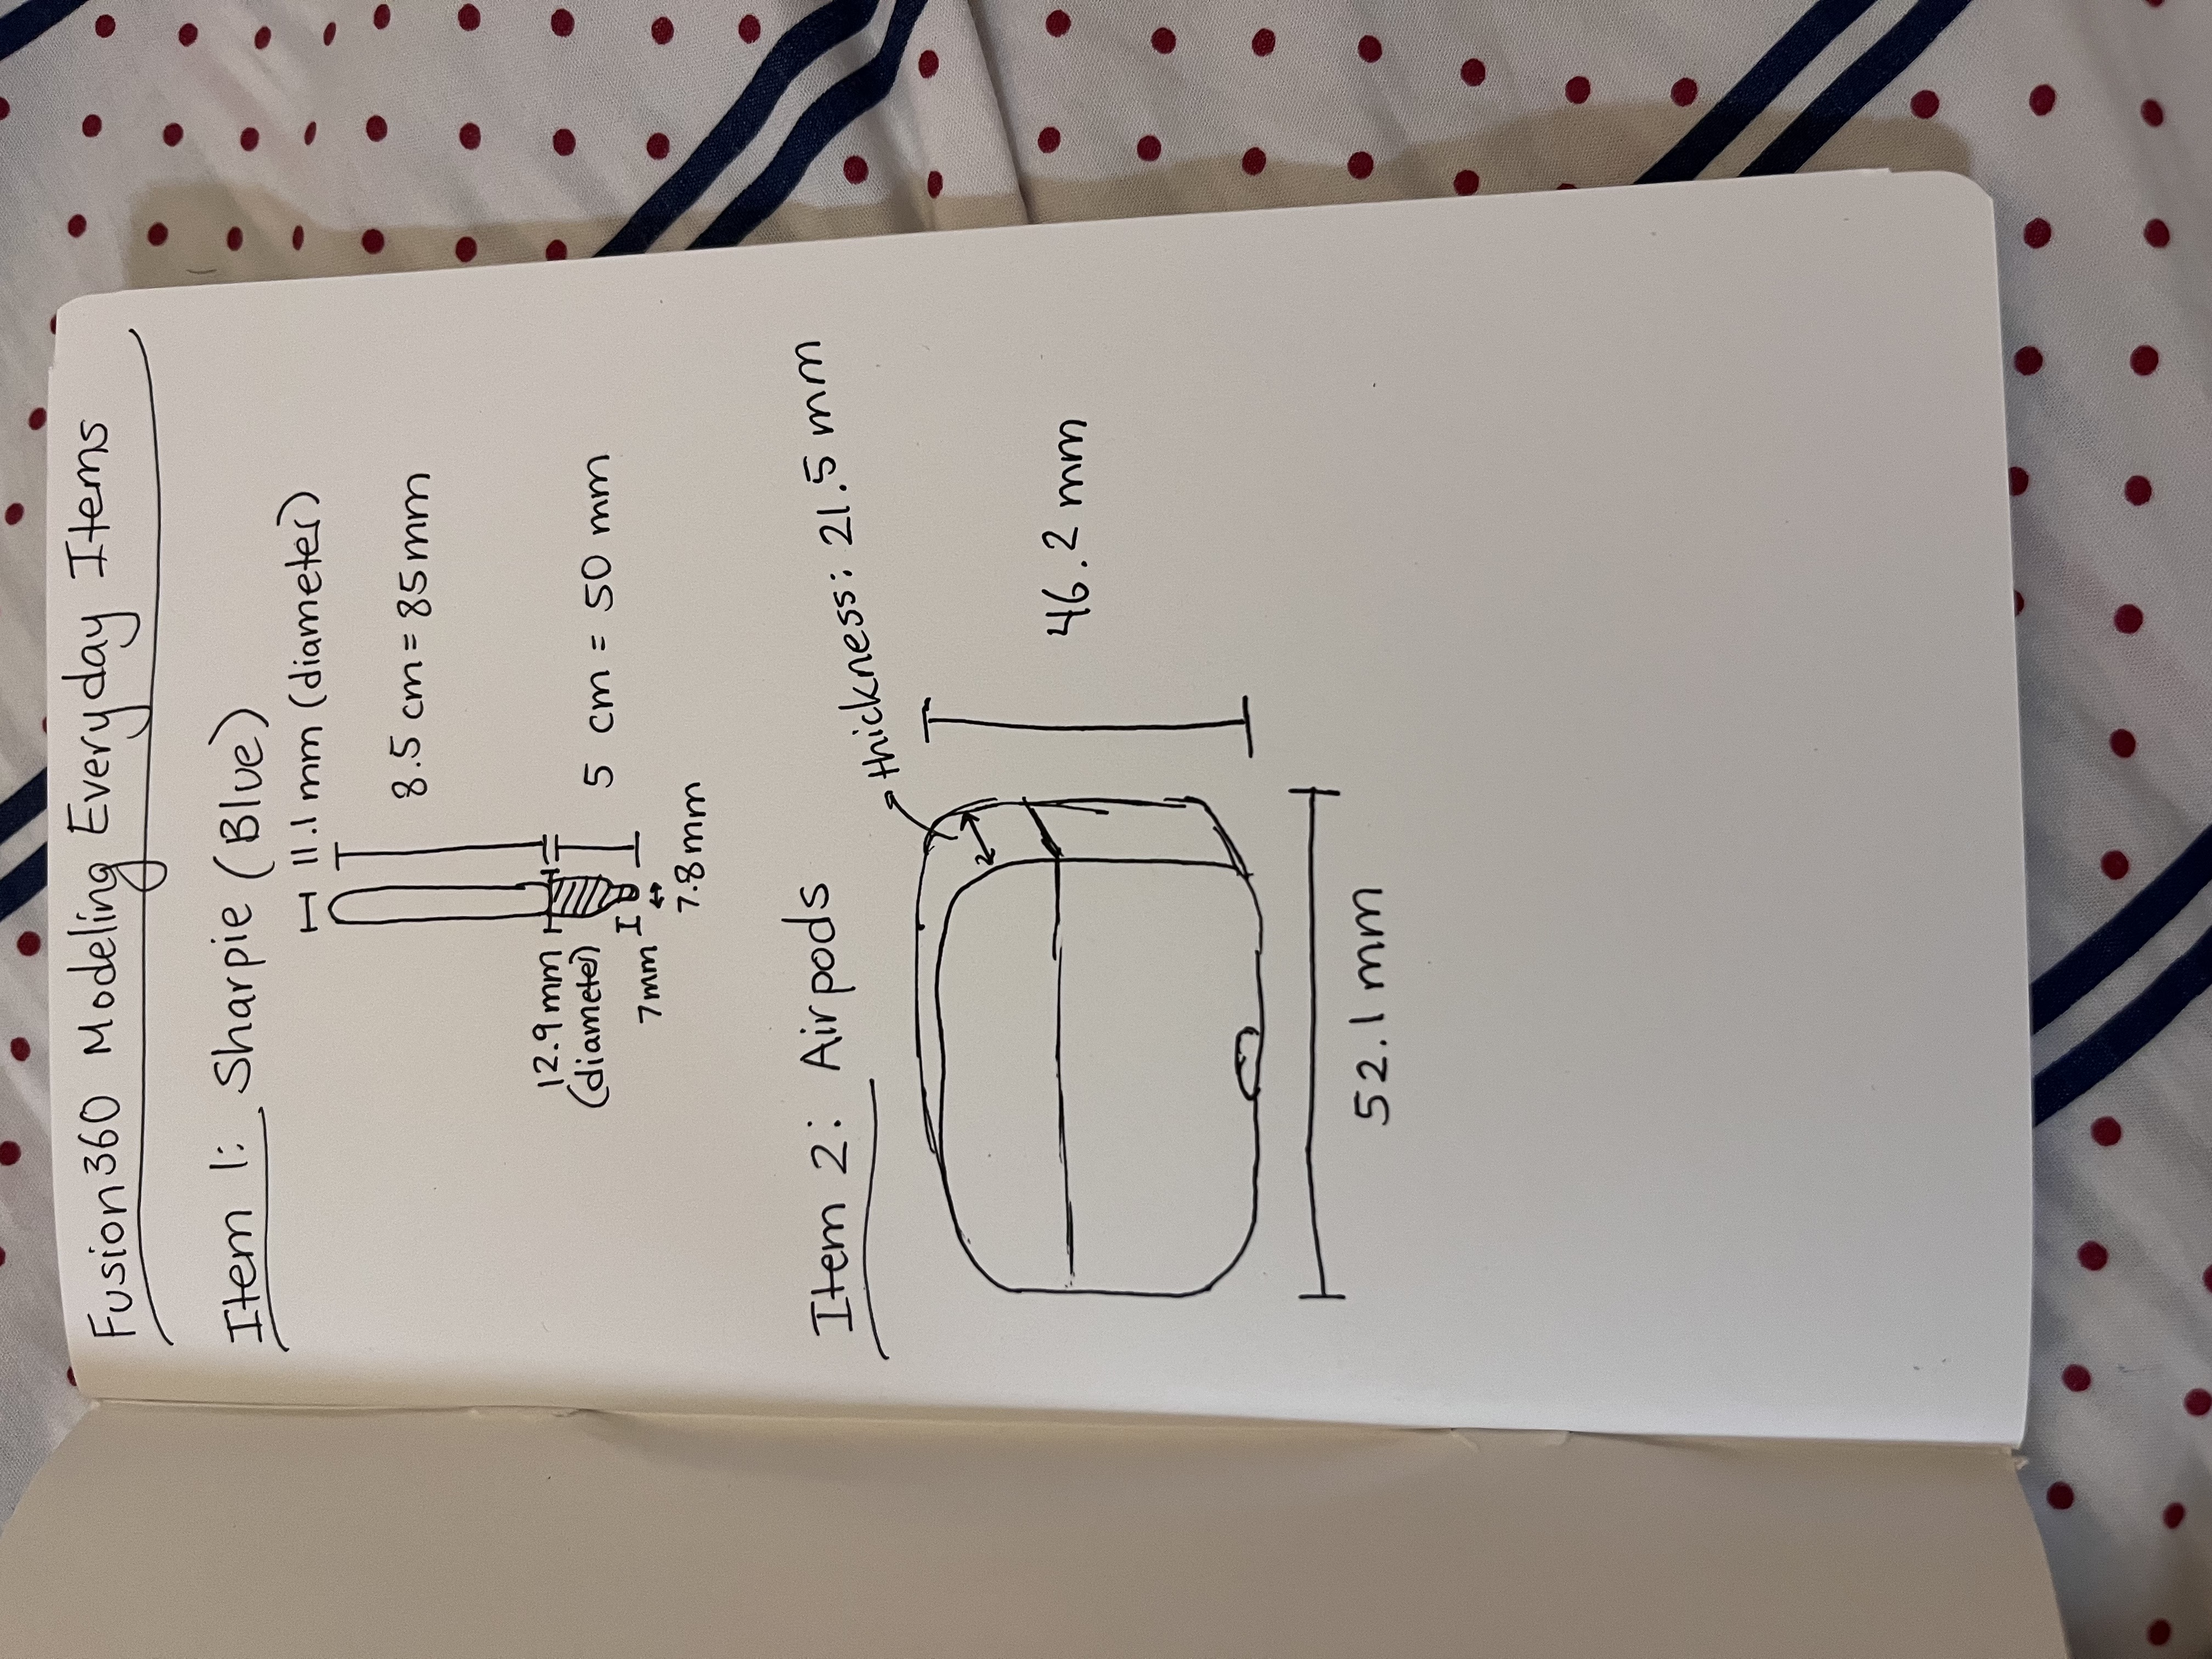 Fusion360 Modeling Everyday Items
Item 1: Sharpie (Blue)
11.1 mm (diameter)
8.5 cm = 85mm
12.9 mm
(diameter)
5 cm = 50 mm
7mm
7.8mm
Item 2: Airpods
thickness: 21.5 mm
46.2 mm
52.1 mm